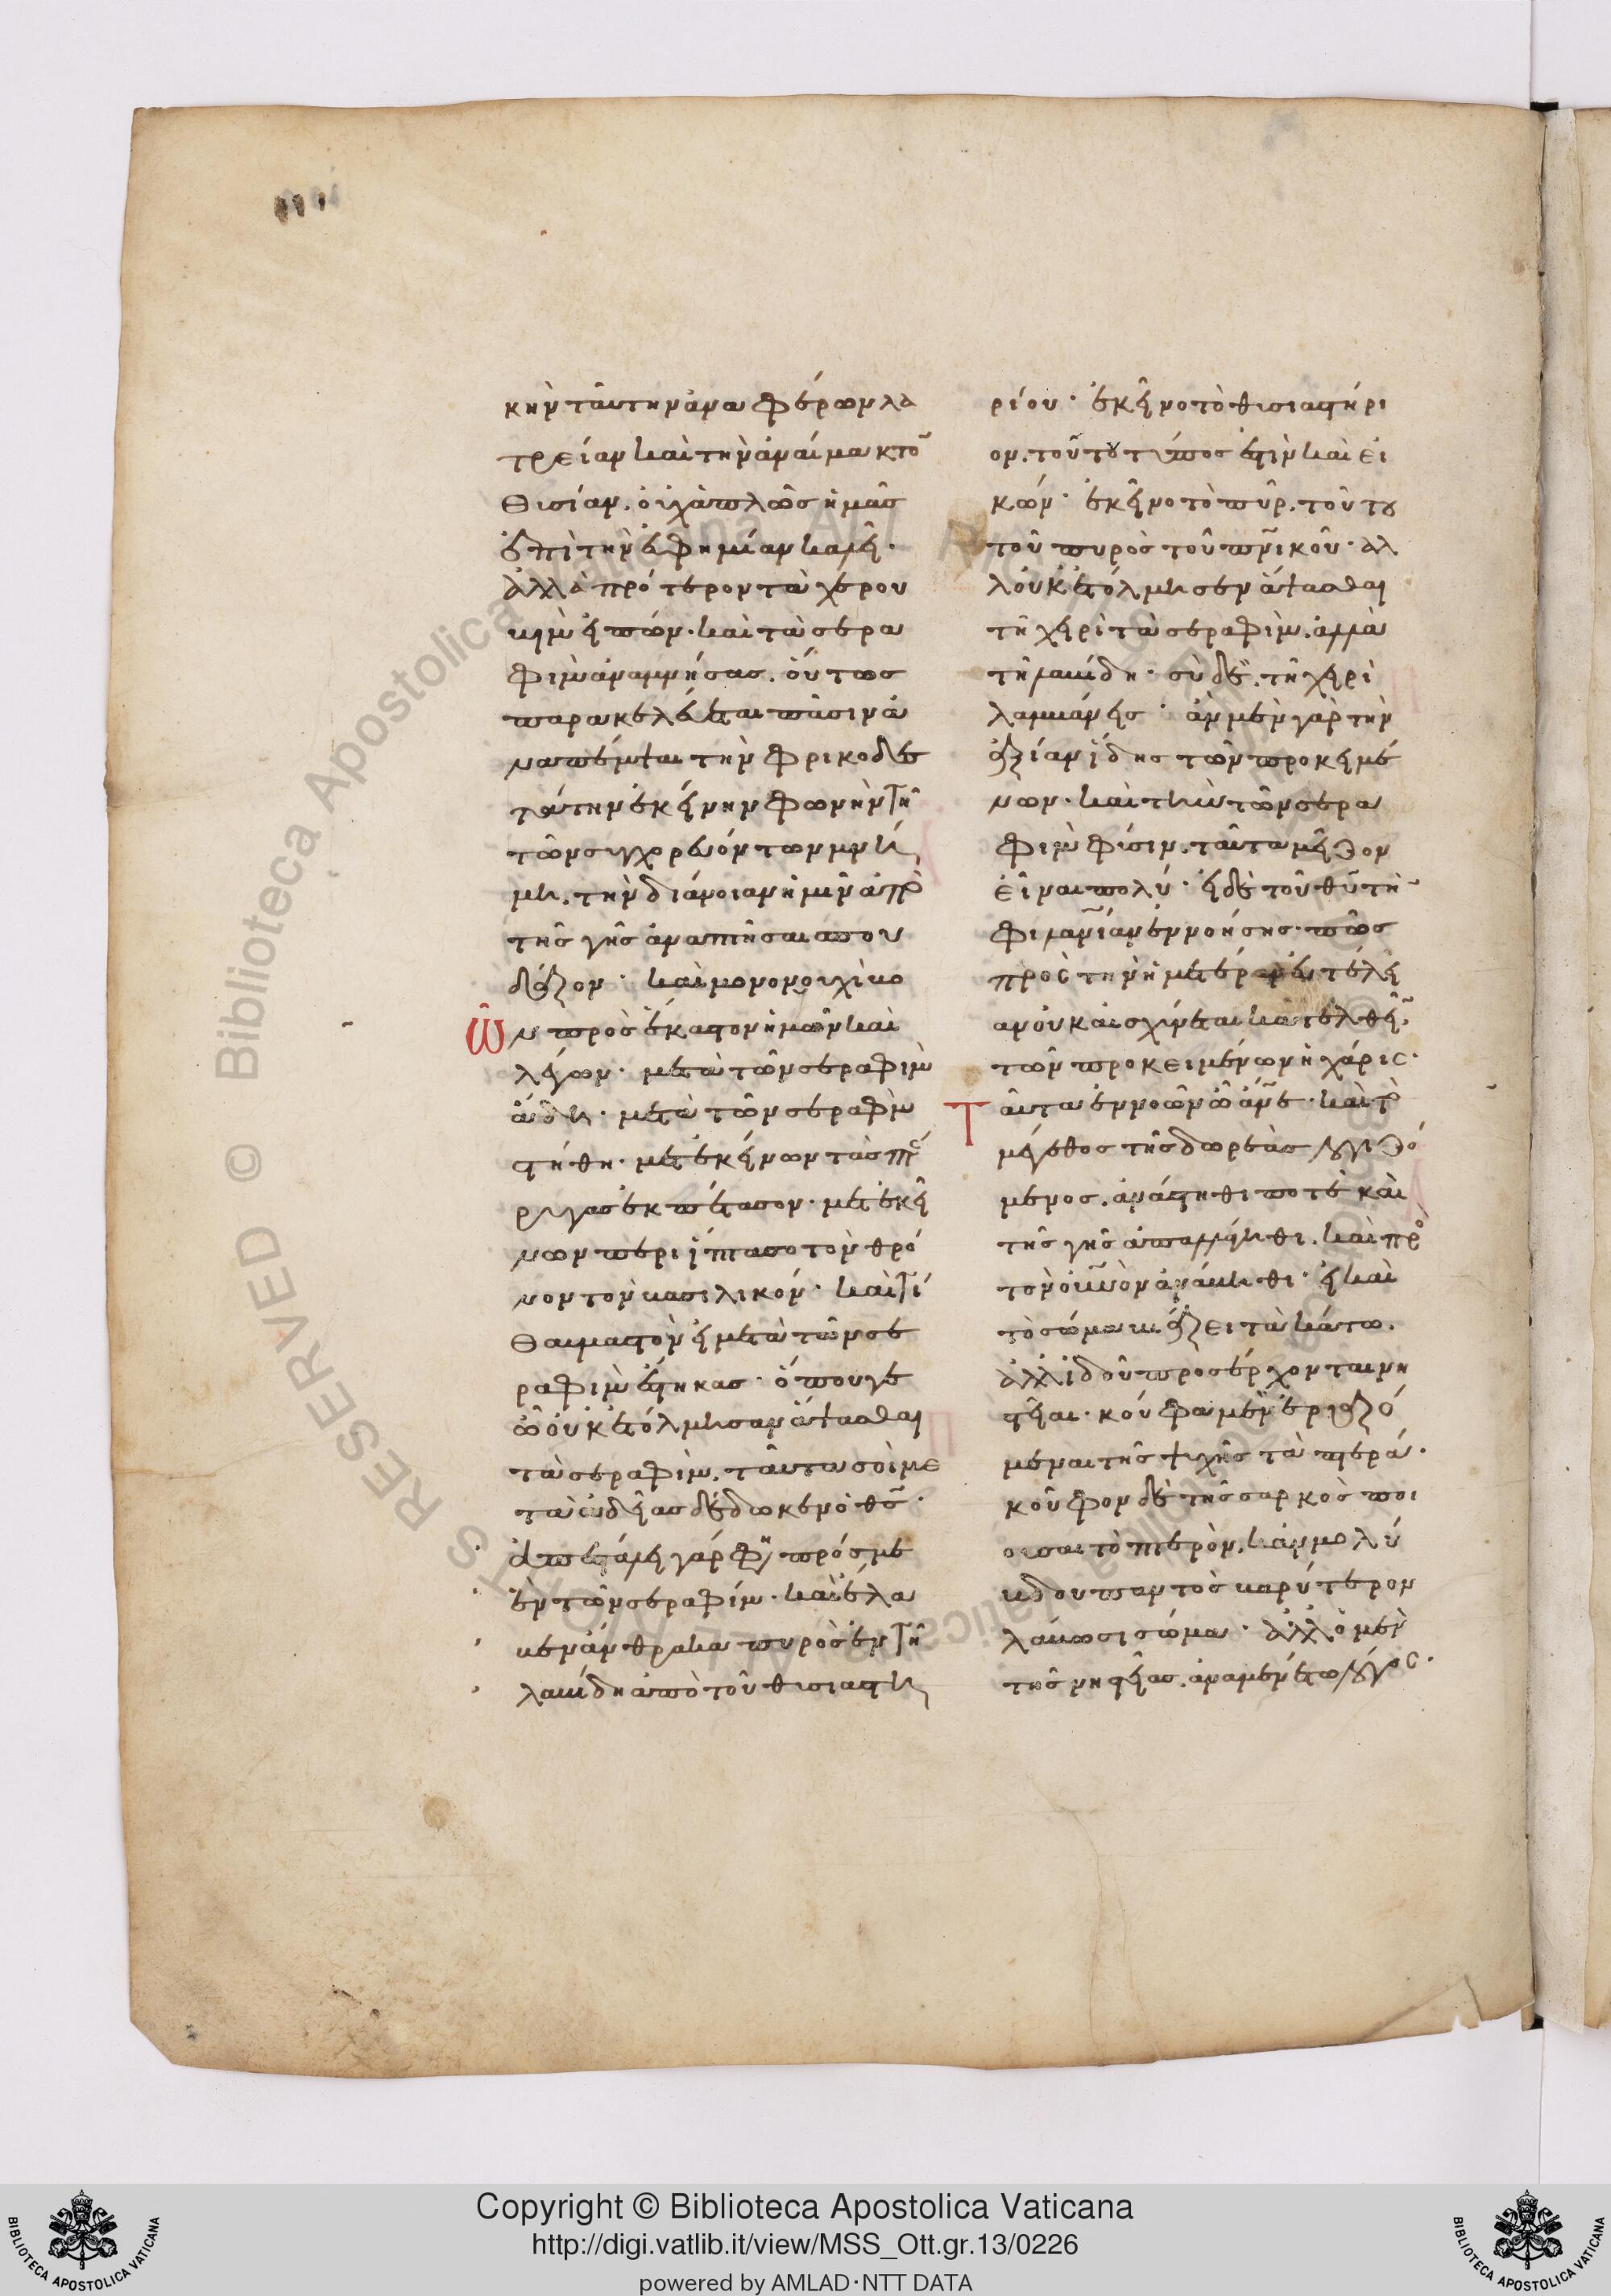 κὴν ταύτην ἀναφέρων λα
τρείαν καὶ τὴν ἀναίμακτο
θισίαν. οὐχ ἁπλῶς ἡμᾶς
ἐπὶ τὴν εὐφημίαν καλεῖ.
ἀλλὰ πρότερον τὰ χερου
βὶμ εἰπὼν. καὶ τὰ σερα
φὶμ ἀναμνήσας. οὕτως
παρακελεύεται πᾶσιν ἀ
ναπέμψαι τὴν φρικοδεσ
τάτην ἐκείνην φωνὴν τῆ
τῶν συγχορευόντων μνή
μη. τὴν διάνοιαν ἡμῶν ἀπὸ
τῆς γῆς ἀναστῆσαι σπου
δάζων. καὶ μονονουχὶ βο
ῶν πρὸς ἕκαστον ἡμῶν καὶ
λέγων. μετὰ τῶν σεραφὶμ
ἄδη. μετὰ τῶν σεραφὶμ
στῆθη. μετ ἐκείνων τὰς πτέ
ρυγας ἐκπέτασον. μετ ἐκεί
νων περιίπτασο τὸν θρό
νον τὸν βασιλικόν. καὶ τί
θαυμαστὸν εἰ μετὰ τῶν σε
ραφὶμ ἕστηκας. ὅπου γε
ὧ οὐκ ἐτόλμησαν ἅψασθαι
τὰ σεραφὶμ. ταῦτα σοὶ με
τὰ ἀδείας δέδωκεν ὁ θς.
ἀπεστάλη γάρ φη πρός με
ἓν τῶν σεραφίμ. καὶ ἔλα
βεν ἄνθρακα πυρὸς ἐν τῆ
λαβίδη ἀπὸ τοῦ θισιαστη
ρίου. ἐκεῖνο τὸ θισιαστήρι
ον. τούτου τύπος ἐστὶν καὶ εἰ
κών. ἐκεῖνο τὸ πῦρ. τούτου
τοῦ πυρὸς τοῦ πνικοῦ. ἀλ
λ οὐκ ἐτόλμησεν ἅψασθαι
τῆ χειρὶ τὰ σεραφὶμ. ἀλλὰ
τῆ λαβίδη. σὺ δὲ. τῆ χειρὶ
λαμβάνεις. ἂν μὲν γὰρ τὴν
ἀξίαν ἴδης τῶν προκειμέ
νων. καὶ τῆς τῶν σερα
φὶμ φύσιν. ταῦτα μείζον
εἶναι πολύ. εἰ δὲ τοῦ θυ τὴ
φιλανίαν ἐννοήσης. πῶς
πρὸς τὴν ἡμετέραν εὐτέλει
αν οὐκ αἰσχύνεται κατελθεῖ
τῶν προκειμένων ἡ χάρις.
Ταῦτα ἐννοῶν ὦ ἄνε. καὶ τὸ
μέγεθος τῆς δωρεᾶς λογιζό
μενος. ἀνάστηθι ποτὲ καὶ
τῆς γῆς ἀπαλλάγηθι. καὶ πρὸ
τὸν οὐνὸν ἀνάβηθι. εἰ καὶ
τὸ σῶμα βιάζει τὰ κάτω.
ἀλλ ἰδοὺ προσέρχονται νη
στεῖαι. κοῦφα μὲν ἐργαζό
μεναι τῆς ψυχῆς τὰ πτερά.
κοῦφον δὲ τῆς σαρκὸς ποι
οῦσαι τὸ πτερὸν. κἂν μολύ
βδου παντὸς βαρύτερον
λάβωσι σῶμα. ἀλλ ὁ μὲν
τῆς νηστείας. ἀναμενέτω λόγος.
Copyright © Biblioteca Apostolica Vaticana
http://digi.vatlib.it/view/MSS_Ott.gr.13/0226
powered by AMLAD·NTT DATA